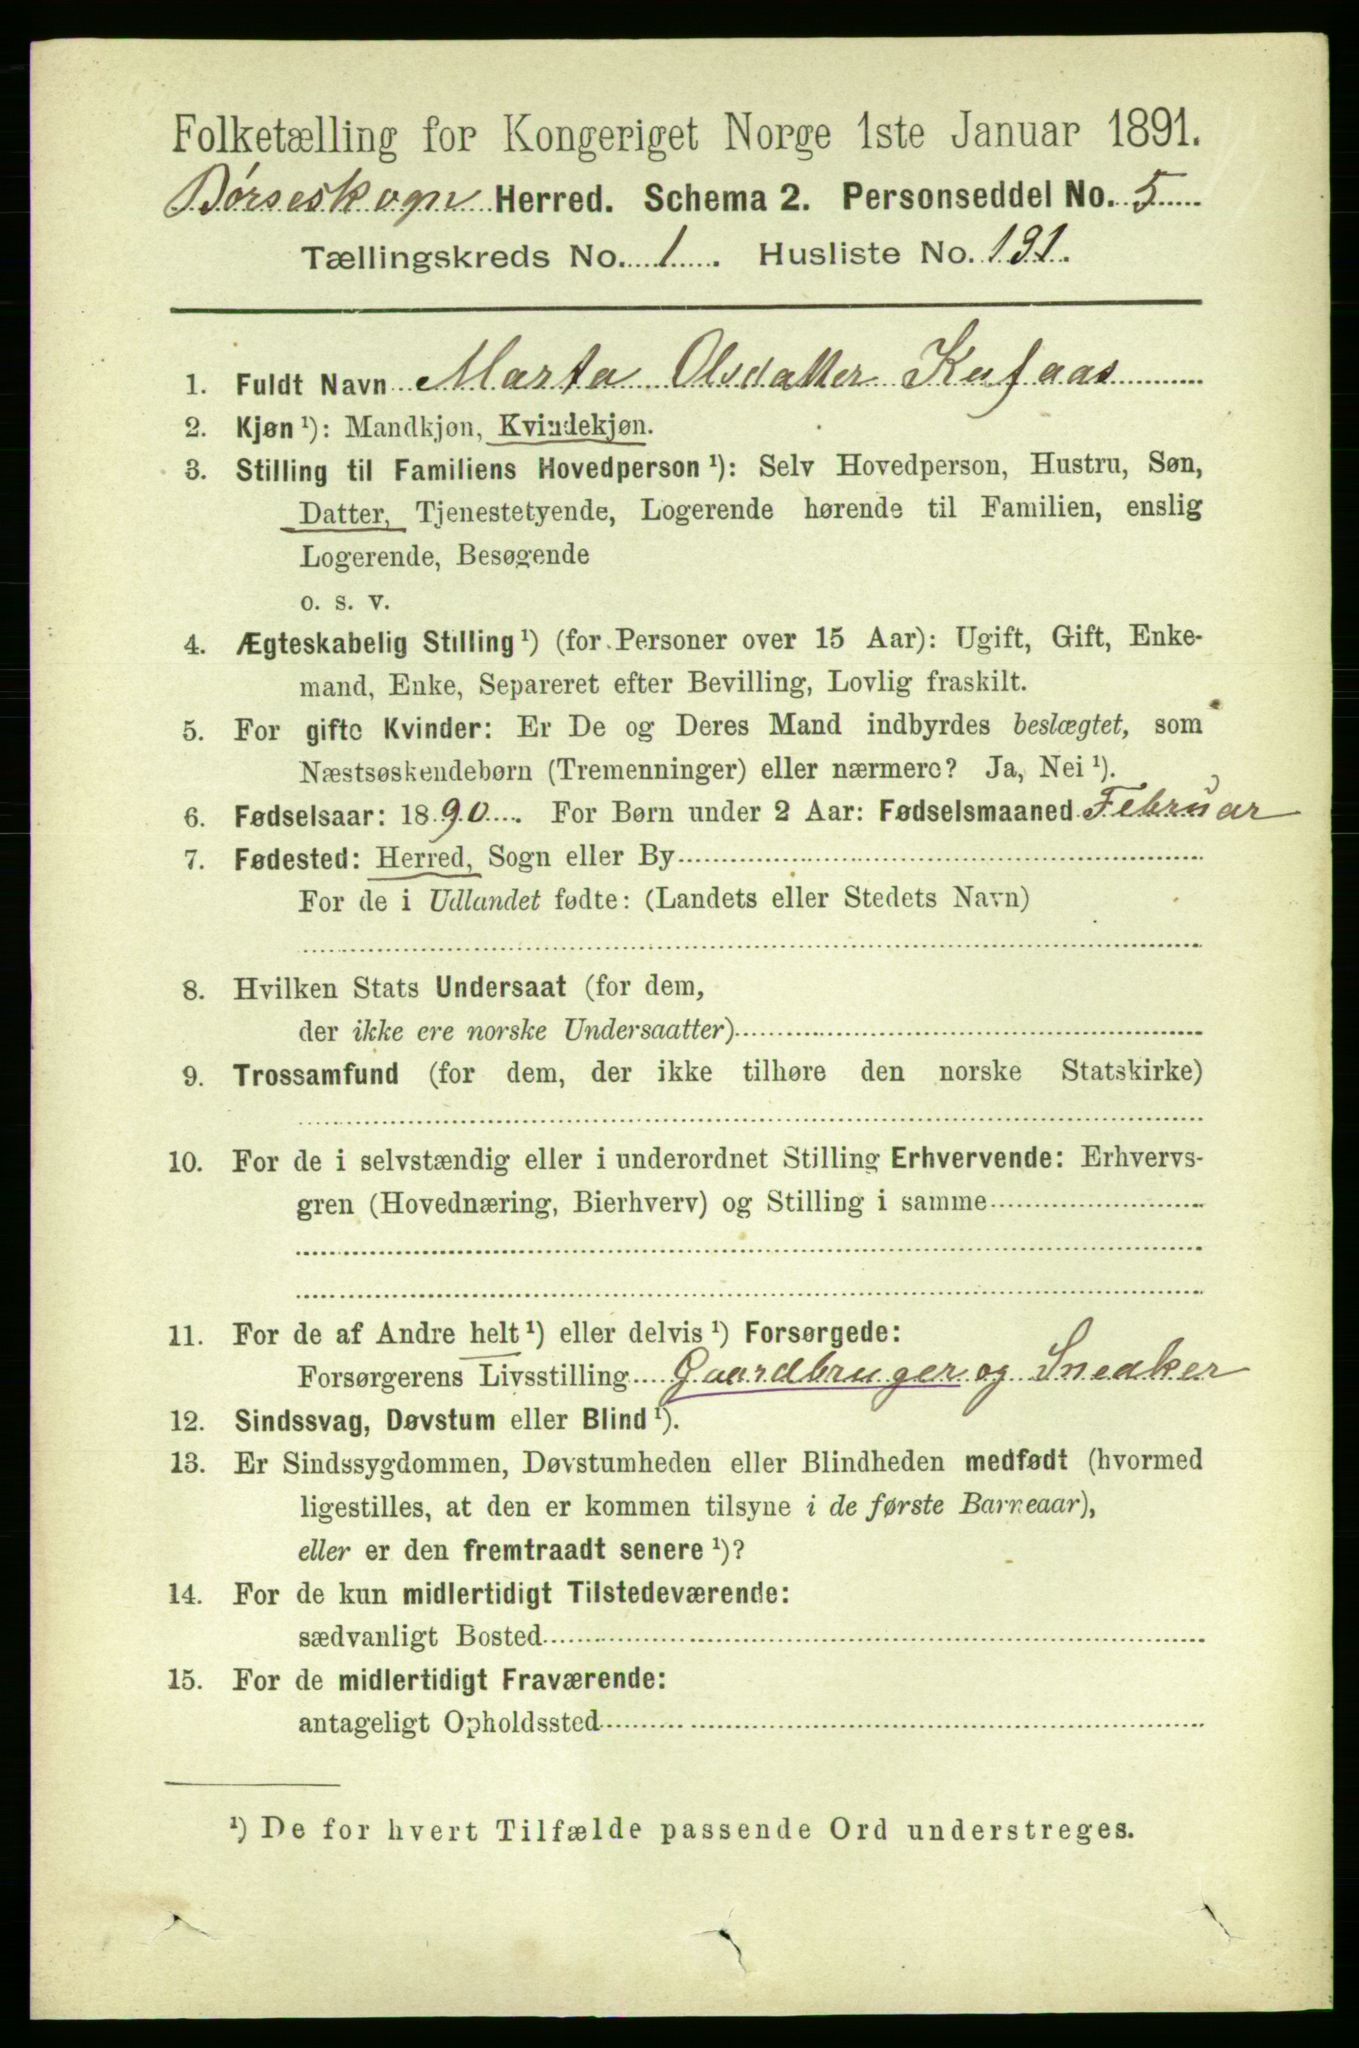 Folketælling for Kongeriget Norge 1ste Januar 1891.
Børseskogn Herred. Schema 2. Personseddel No. 5
Tællingskreds No. 1. Husliste No. 191.
1. Fuldt Navn Marta Olsdatter Kufaas
2. Kjøn ¹): Mandkjøn, Kvindekjøn.
3. Stilling til Familiens Hovedperson ¹): Selv Hovedperson, Hustru, Søn,
Datter, Tjenestetyende, Logerende hørende til Familien, enslig
Logerende, Besøgende
o. s. v.
4. Ægteskabelig Stilling ¹) (for Personer over 15 Aar): Ugift, Gift, Enke-
mand, Enke, Separeret efter Bevilling, Lovlig fraskilt.
5. For gifte Kvinder: Er De og Deres Mand indbyrdes beslægtet, som
Næstsøskendebørn (Tremenninger) eller nærmere? Ja, Nei ¹).
6. Fødselsaar: 1890. For Børn under 2 Aar: Fødselsmaaned Februar
7. Fødested: Herred, Sogn eller By
For de i Udlandet fødte: (Landets eller Stedets Navn)
8. Hvilken Stats Undersaat (for dem,
der ikke ere norske Undersaatter)
9. Trossamfund (for dem, der ikke tilhøre den norske Statskirke)
10. For de i selvstændig eller i underordnet Stilling Erhvervende: Erhvervs-
gren (Hovednæring, Bierhverv) og Stilling i samme
11. For de af Andre helt ¹) eller delvis ¹) Forsørgede:
Forsørgerens Livsstilling Gaardbruger og Snedker
12. Sindssvag, Døvstum eller Blind ¹).
13. Er Sindssygdommen, Døvstumheden eller Blindheden medfødt (hvormed
ligestilles, at den er kommen tilsyne i de første Barneaar),
eller er den fremtraadt senere ¹)?
14. For de kun midlertidigt Tilstedeværende:
sædvanligt Bosted
15. For de midlertidigt Fraværende:
antageligt Opholdssted
¹) De for hvert Tilfælde passende Ord understreges.